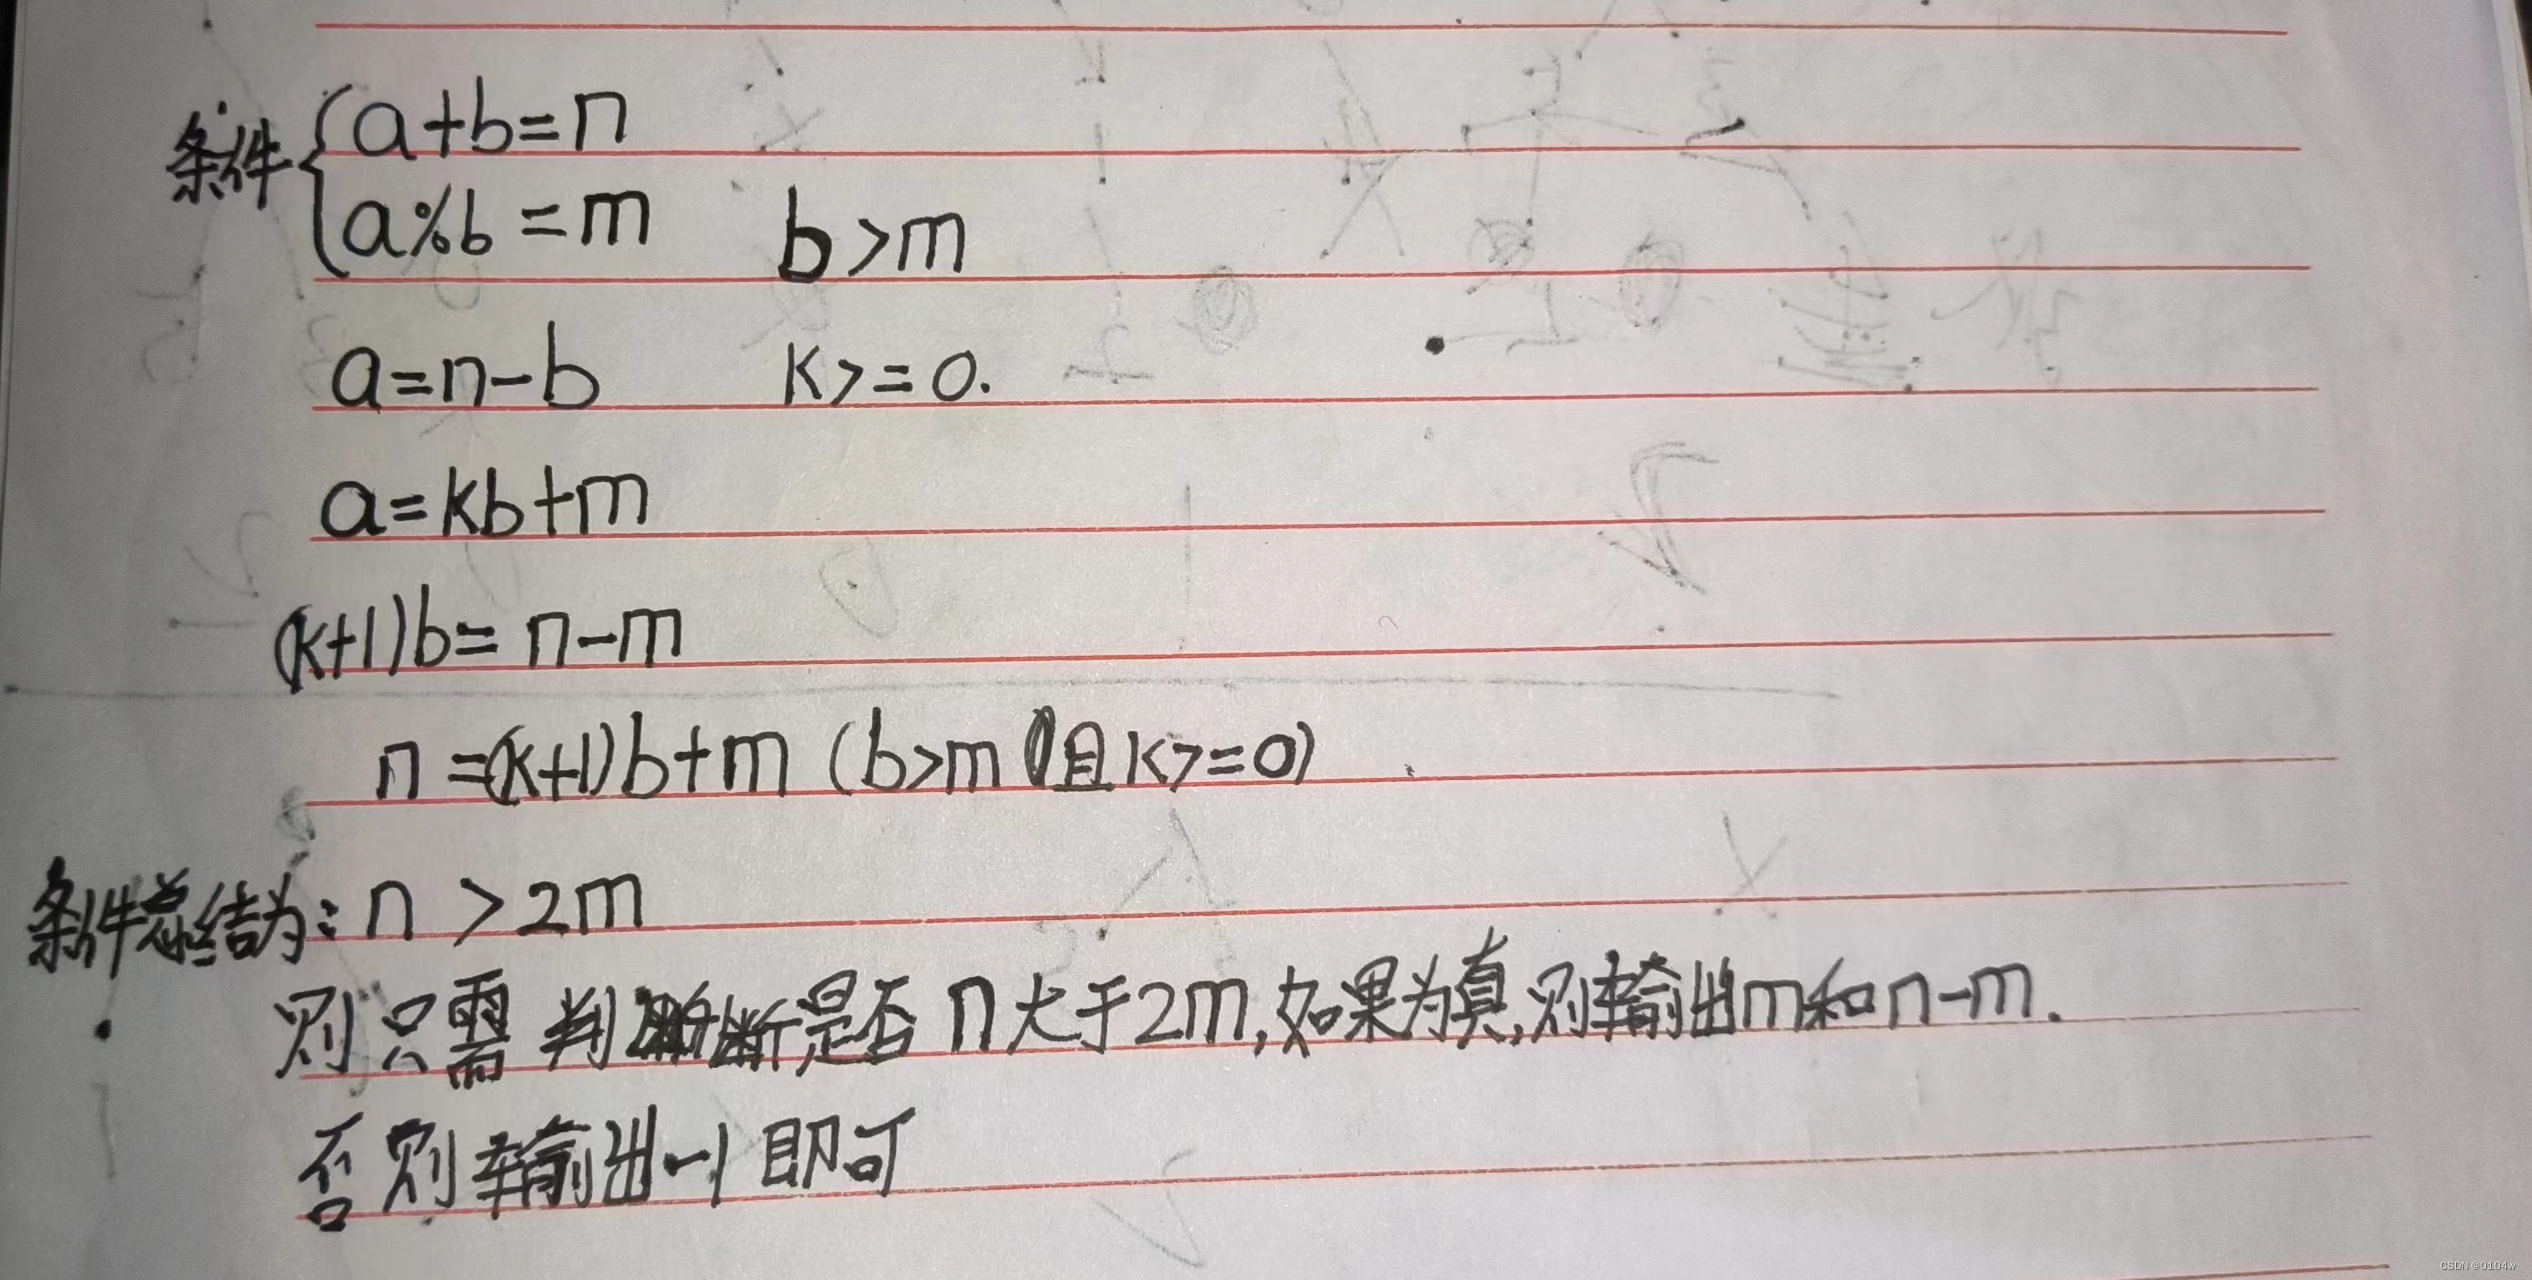 条件 { a+b=n
a%b=m b>m
a=n-b k>=0.
a=kb+m
(k+1)b=n-m
n=(k+1)b+m (b>m且k>=0)
条件总结为: n>2m
则只需判断是否n大于2m,如果为真,则输出m和n-m.
否则输出-1即可
CSDN @0104w